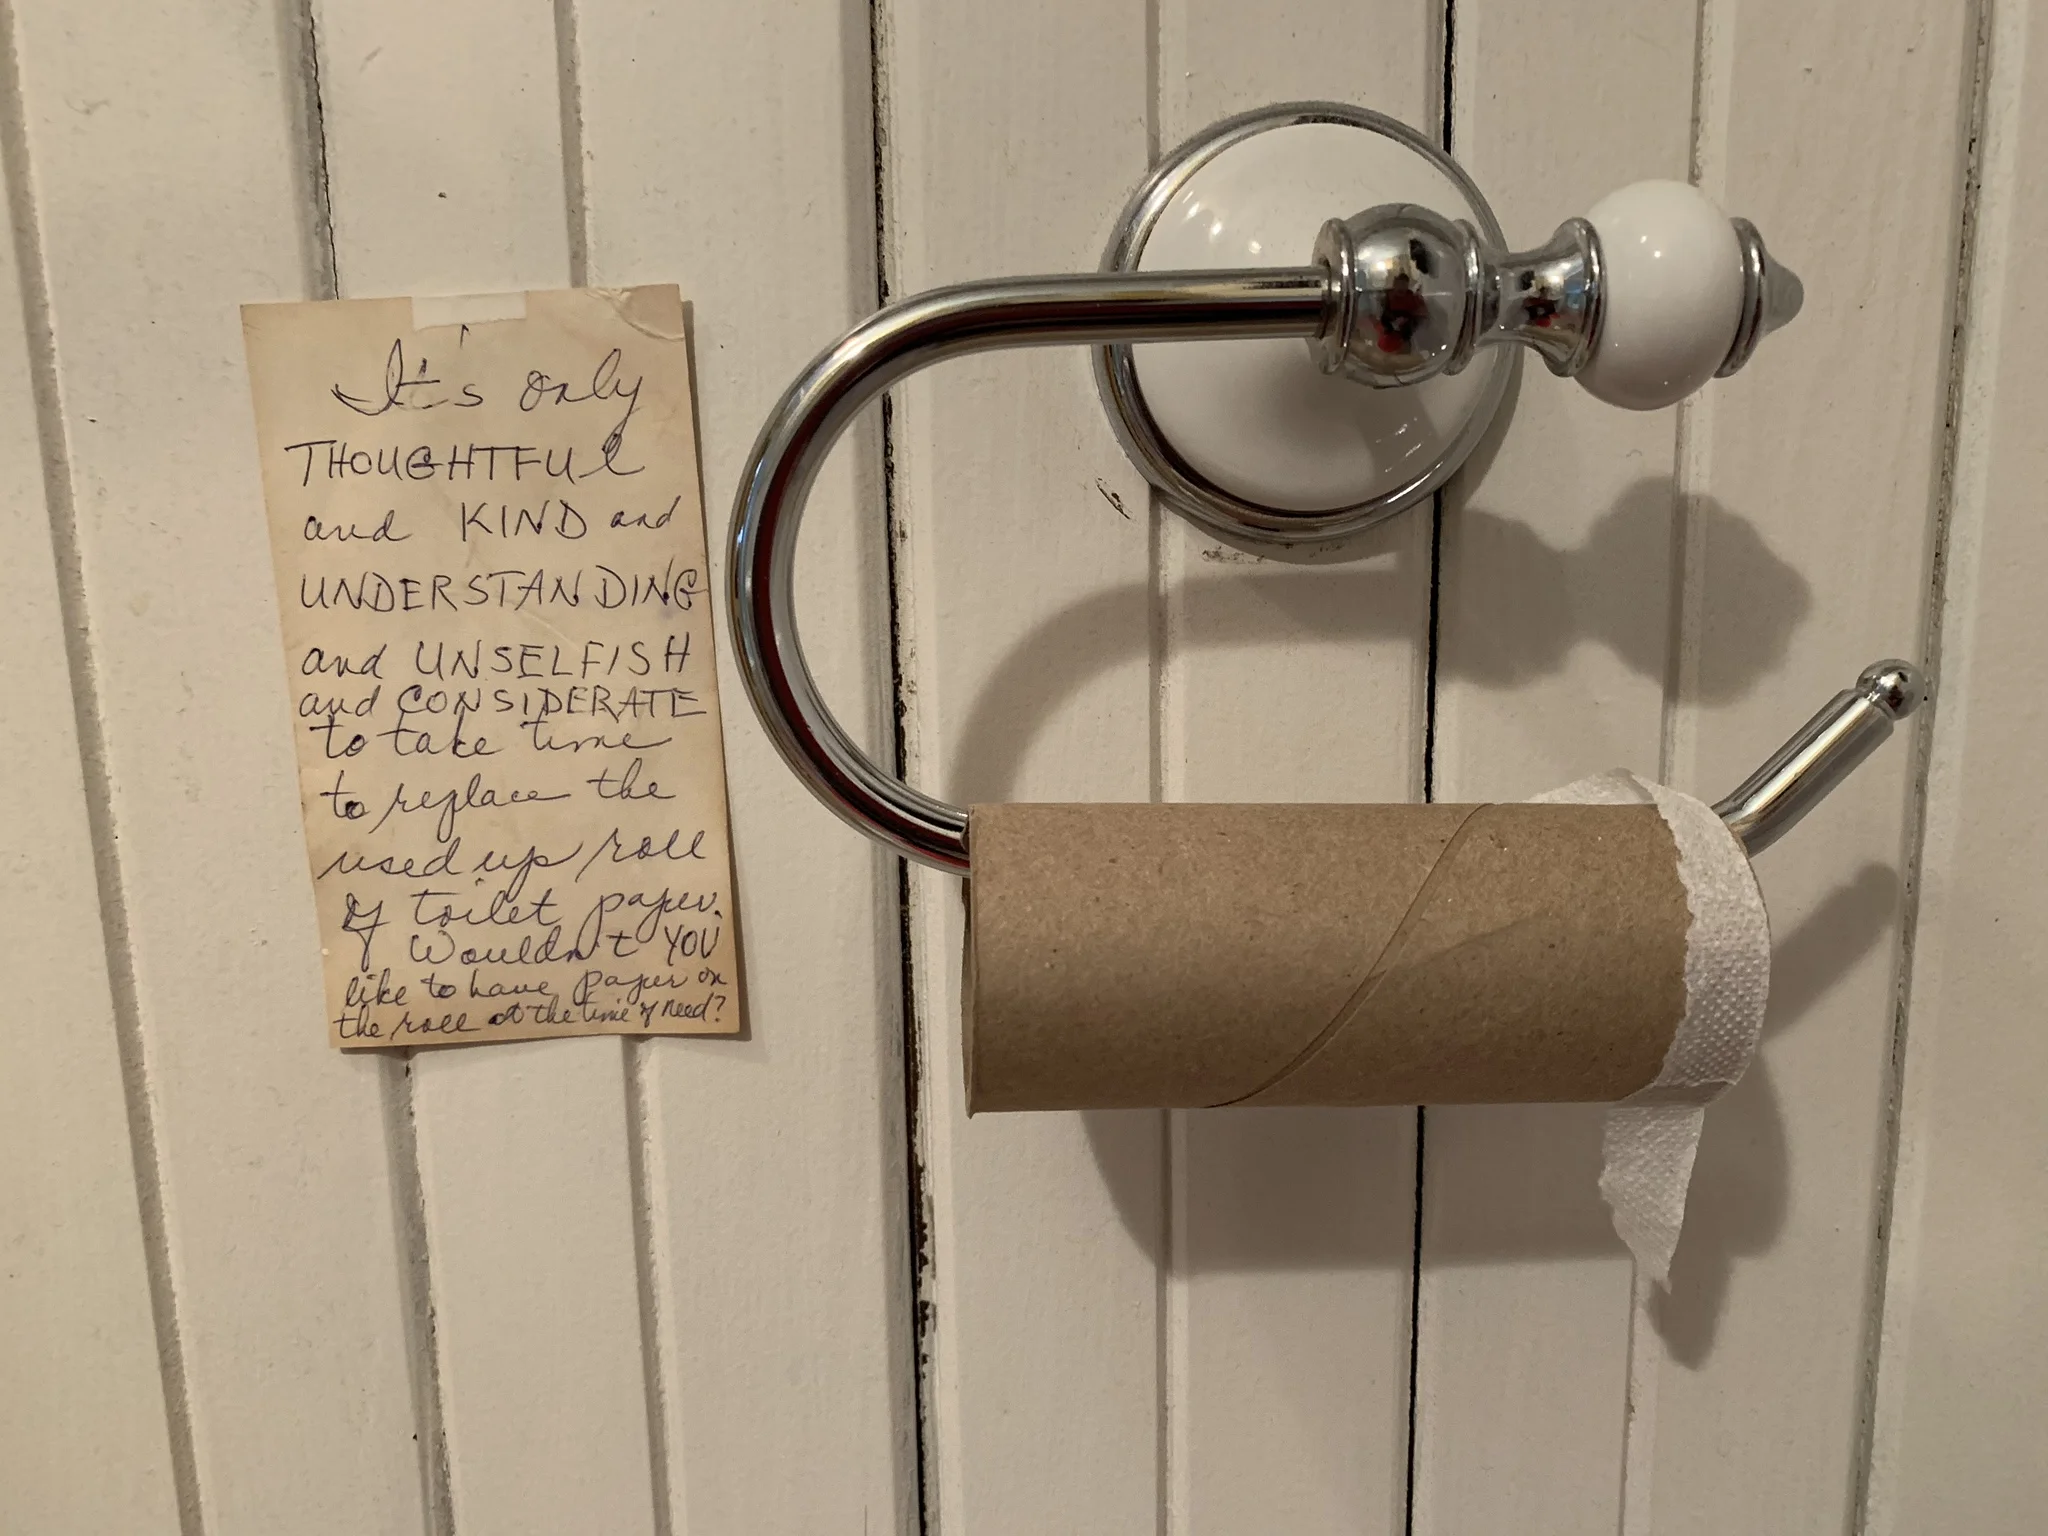 It's only
THOUGHTFUl
and KIND and
UNDERSTANDING
and UNSELFISH
and CONSIDERATE
to take time
to replace the
used up roll
of toilet paper.
Wouldn't YOU
like to have paper on
the roll at the time of need?